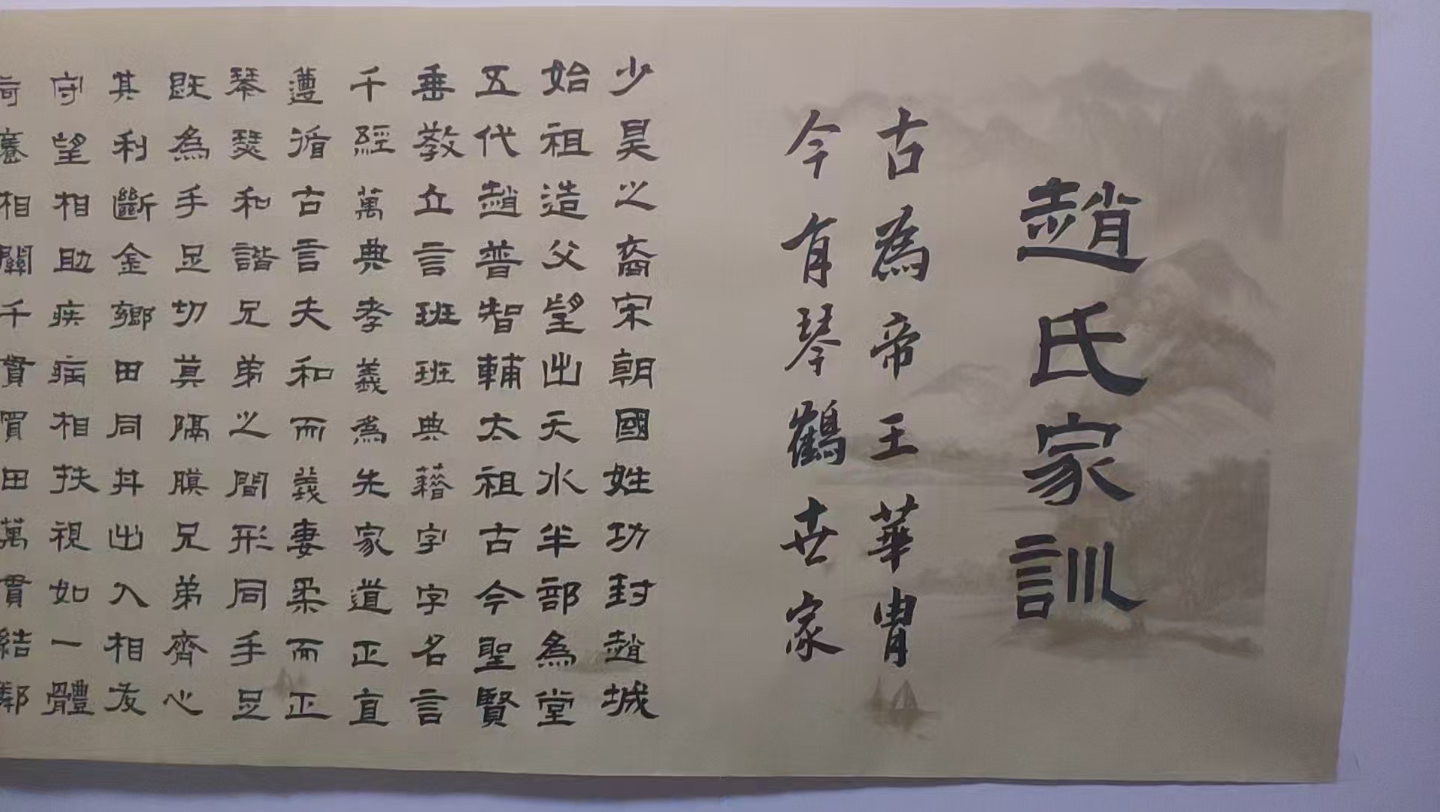 趙氏家訓
古為帝王華胄
今有琴鶴世家
少昊之裔宋朝國姓功封趙城
始祖造父望出天水半部為堂
五代趙普智輔太祖古今聖賢
垂教立言班班典藉字字名言
千經萬典孝義為先家道正直
遵循古言夫和而義妻柔而正
琴瑟和諧兄弟之間形同手足
既為手足切莫隔膜兄弟齊心
其利斷金鄉田同井出入相友
守望相助疾病相扶視如一體
相關千貫買田萬貫結鄰